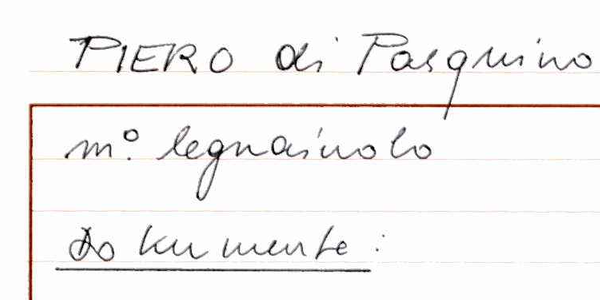 PIERO di Pasquino
m.º legnaiuolo
Dokumente: